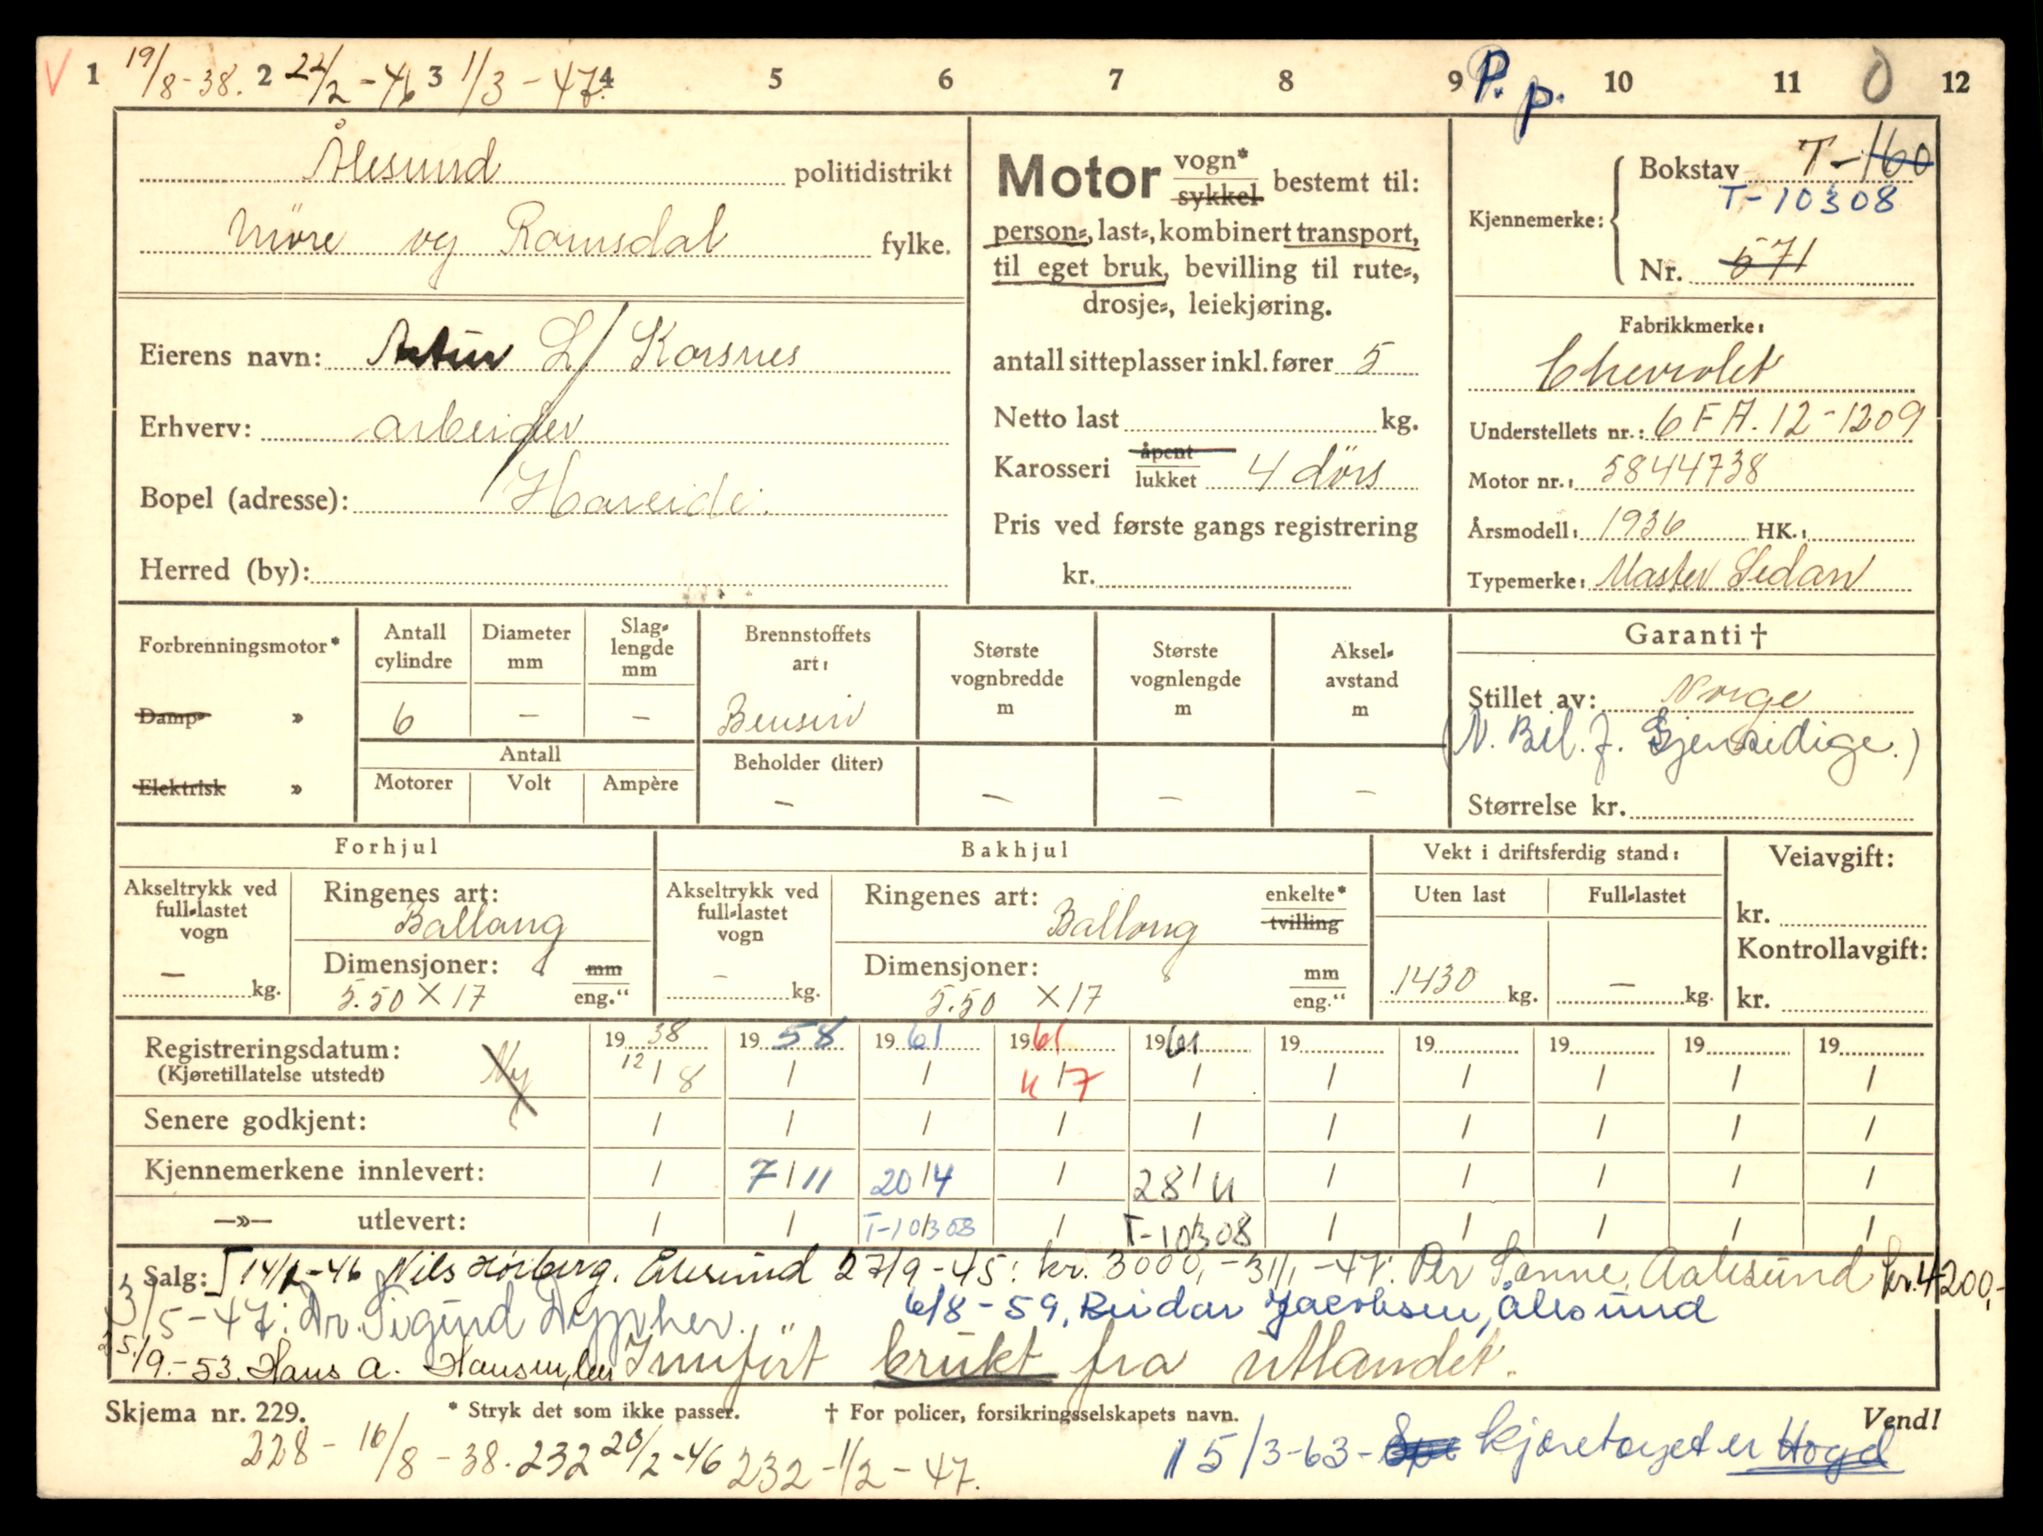 V 1 19/8-38. 2 22/2-46 3 1/3-47. 4 5 6 7 8 9 P. p. 10 11 0 12
Ålesund politidistrikt
Möre og Romsdal fylke.
Eierens navn: Artur L. Korsnes
Erhverv: arbeider
Bopel (adresse): Hareide.
Herred (by):
Motor vogn* sykkel bestemt til:
person-, last-, kombinert transport,
til eget bruk, bevilling til rute-,
drosje-, leiekjøring.
antall sitteplasser inkl. fører 5
Netto last kg.
Karosseri åpent lukket 4 dörs
Pris ved første gangs registrering
kr.
Kjennemerke: Bokstav T-160
T-10308
Nr. 571
Fabrikkmerke:
Chevrolet
Understellets nr.: 6 FA. 12-1209
Motor nr.: 5844738
Årsmodell: 1936 HK.:
Typemerke: Master Sedan
Forbrenningsmotor*
Damp- »
Elektrisk »
Antall cylindre 6
Diameter mm –
Slag-lengde mm –
Antall
Motorer Volt Ampère
Brennstoffets art: Bensin
Beholder (liter) –
Største vognbredde m –
Største vognlengde m –
Aksel-avstand m –
Garanti †
Stillet av: Norge
(N. Bil. f. Gjensidige.)
Størrelse kr.
Forhjul
Akseltrykk ved full-lastet vogn – kg.
Ringenes art: Ballong
Dimensjoner: 5.50 × 17 mm eng."
Bakhjul
Akseltrykk ved full-lastet vogn – kg.
Ringenes art: Ballong enkelte* tvilling
Dimensjoner: 5.50 × 17 mm eng."
Vekt i driftsferdig stand:
Uten last 1430 kg.
Full-lastet – kg.
Veiavgift:
kr.
Kontrollavgift:
kr.
Registreringsdatum: (Kjøretillatelse utstedt) Ny
19 38 19 58 19 61 19 61 19 61 19 19 19 19 19
12/8 / / 11/7 / / / / / /
Senere godkjent: / / / / / / / / / /
Kjennemerkene innlevert: / 7/11 20/4 / 28/11 / / / / /
—»— utlevert: / / T-10308 / T-10308 / / / / /
Salg: 14/2-46 Nils Hörberg. Ålesund 27/9-45: kr. 3000,- 31/1-47: Per Sonne, Aalesund kr. 4200,-
3/5-47: Dr. Sigurd 6/8-59, Reidar Jacobsen, Ålesund
25/9.-53. Hans A. Hansen, her Innfört brukt fra utlandet.
Skjema nr. 229. * Stryk det som ikke passer. † For policer, forsikringsselskapets navn. Vend!
228 - 16/8-38. 232 20/2-46 232 - 1/2-47.
15/3-63- kjøretøyet er Hogd